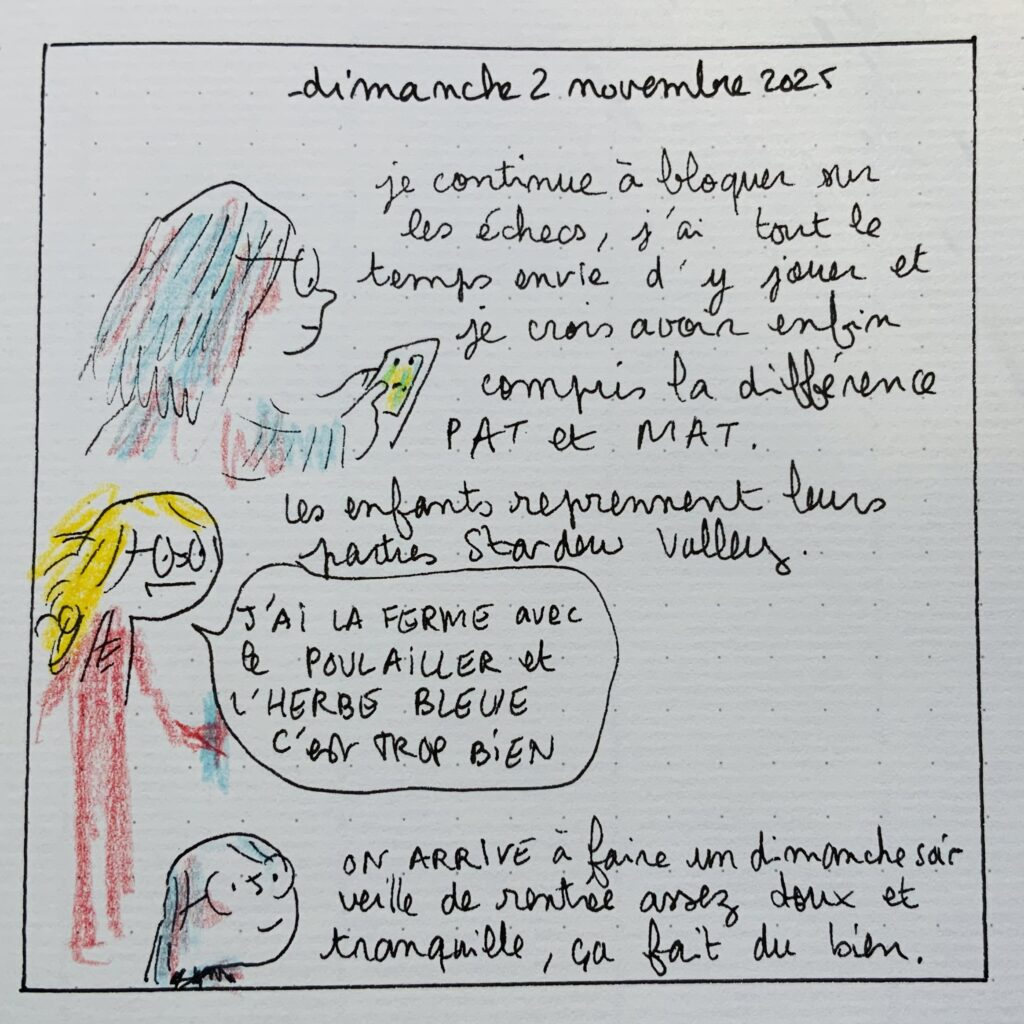 -dimanche 2 novembre 2025
je continue à bloquer sur
les échecs, j'ai tout le
temps envie d'y jouer et
je crois avoir enfin
compris la différence
PAT et MAT.
Les enfants reprennent leurs
parties Stardew Valley.
J'AI LA FERME avec
le POULAILLER et
L'HERBE BLEUE
C'est TROP BIEN
ON ARRIVE à faire un dimanche soir
veille de rentrée assez doux et
tranquille, ça fait du bien.